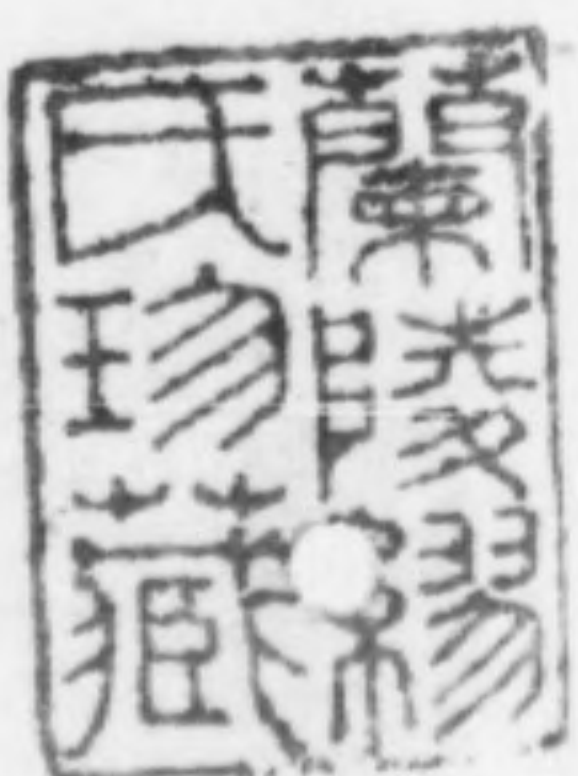 蘭陵繆
氏珍藏